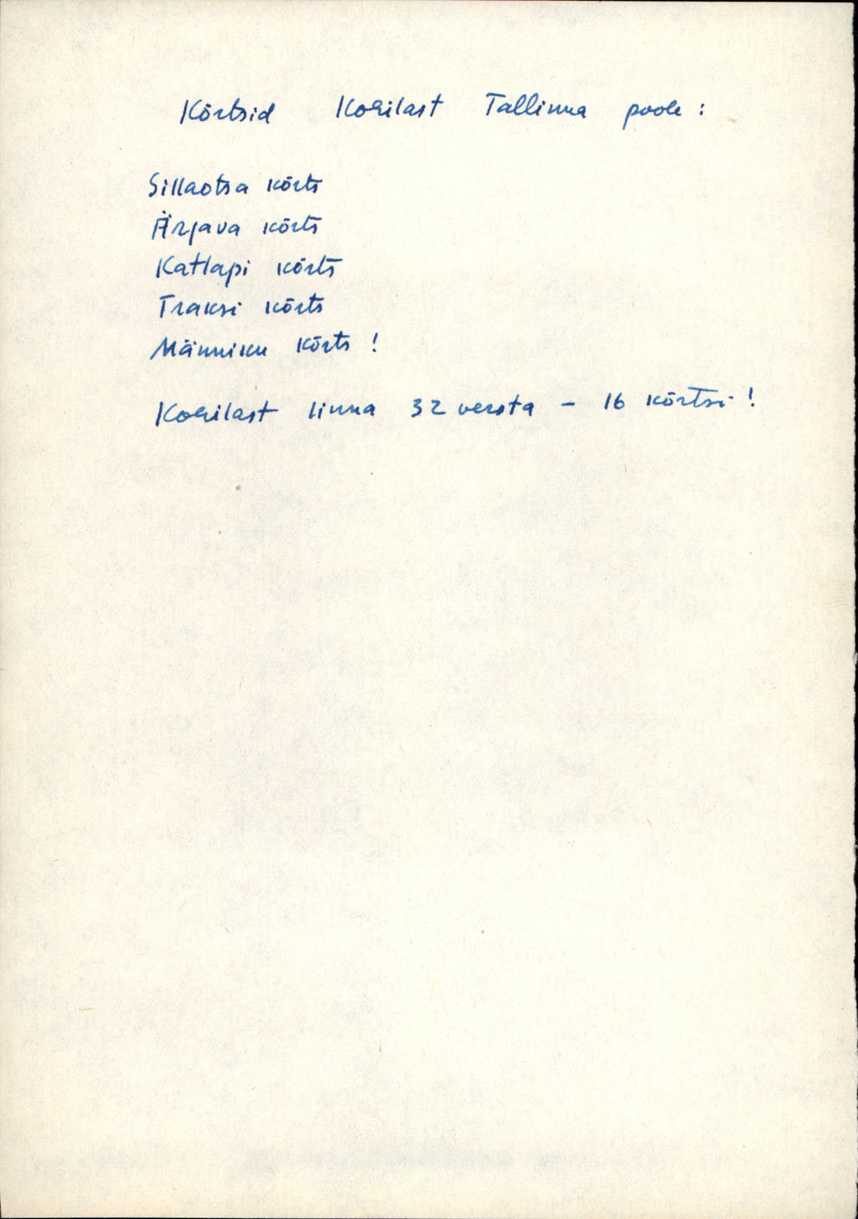 Kõrtsid Kohilast Tallinna poole :
Sillaotsa kõrts
Ärjava kõrts
Katlapi kõrts
Traksi kõrts
Männiku kõrts !
Kohilast linna 32 versta – 16 kõrtsi !